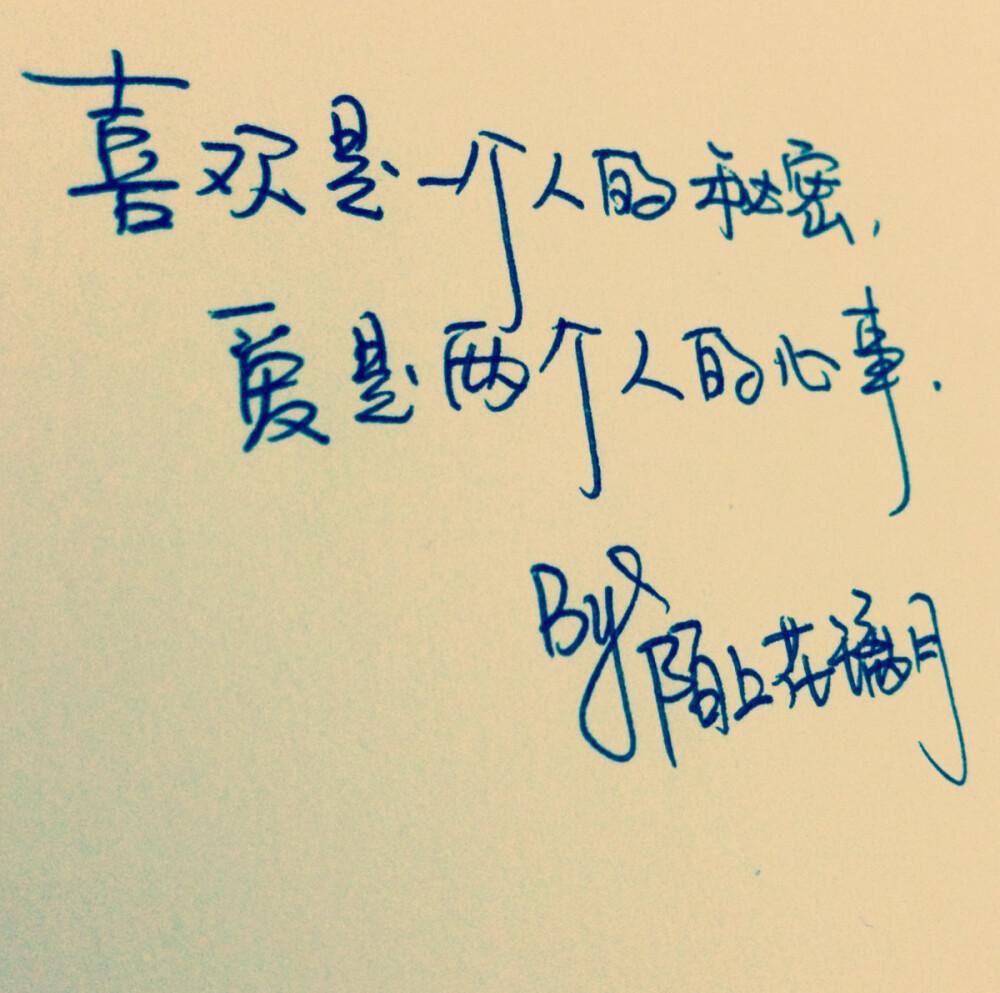 喜欢是一个人的秘密,
爱是两个人的心事.
By 陌上花璃月